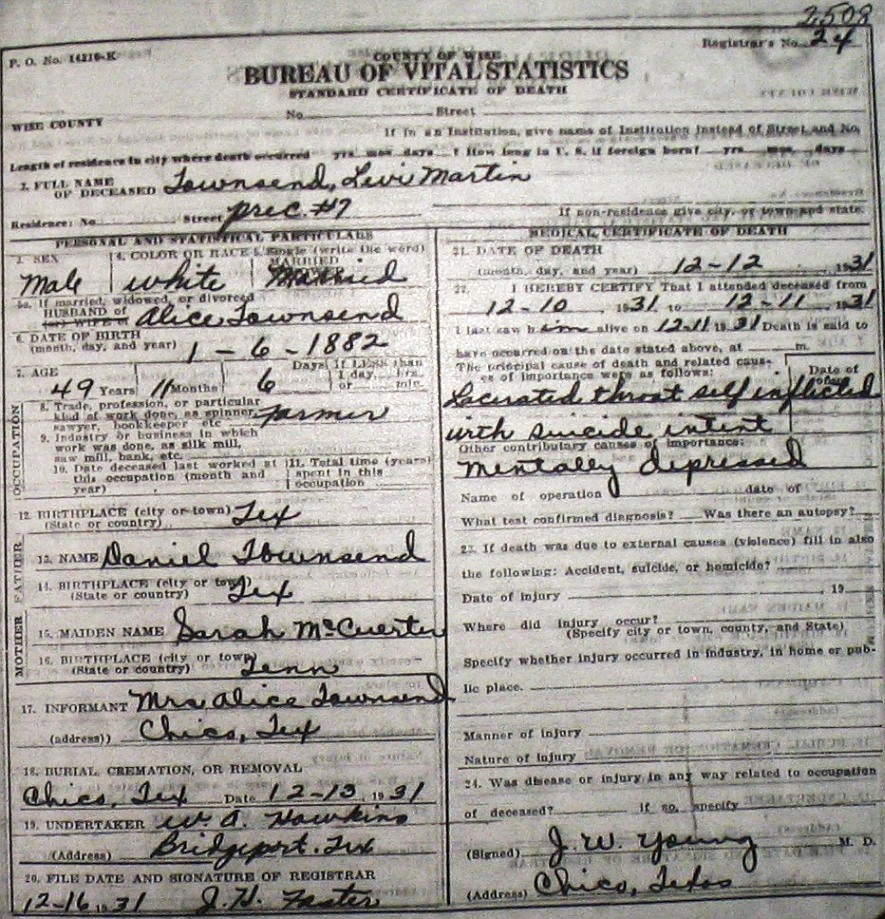 2508
Registrar's No. 24
P. O. No. 14216-K
COUNTY OF WISE
BUREAU OF VITAL STATISTICS
STANDARD CERTIFICATE OF DEATH
WISE COUNTY
No. Street
If in an Institution, give name of Institution instead of Street and No.
Length of residence in city where death occurred yrs mos days ? How long in U. S. if foreign born? yrs mos. days
2. FULL NAME OF DECEASED Townsend, Levi Martin
Residence: No Street prec. #7 If non-residence give city, or town and state.
PERSONAL AND STATISTICAL PARTICULARS
3. SEX Male
4. COLOR OR RACE white
5. Single (write the word) MARRIED Married
5a. If married, widowed, or divorced
HUSBAND of
(or) WIFE of Alice Townsend
6. DATE OF BIRTH
(month, day, and year) 1 - 6 - 1882
7. AGE 49 Years 11 Months 6 Days If LESS than 1 day, hrs. or min.
OCCUPATION
8. Trade, profession, or particular
kind of work done, as spinner,
sawyer, bookkeeper etc farmer
9. Industry or business in which
work was done, as silk mill,
saw mill, bank, etc.
10. Date deceased last worked at
this occupation (month and
year)
11. Total time (years)
spent in this
occupation
12. BIRTHPLACE (city or town)
(State or country) Tex
FATHER
13. NAME Daniel Townsend
14. BIRTHPLACE (city or town)
(State or country) Tex
MOTHER
15. MAIDEN NAME Sarah McCuerten
16. BIRTHPLACE (city or town)
(State or country) Tenn
17. INFORMANT Mrs Alice Townsend
(address)) Chico, Tex
18. BURIAL, CREMATION, OR REMOVAL
Chico, Tex Date 12-13 1931
19. UNDERTAKER W. A. Hawkins
(Address) Bridgeport. Tex
20. FILE DATE AND SIGNATURE OF REGISTRAR
12-16 1931 J. H. Faster
MEDICAL CERTIFICATE OF DEATH
21. DATE OF DEATH
(month, day, and year) 12-12 1931
22. I HEREBY CERTIFY That I attended deceased from
12-10 1931 to 12-11 1931
I last saw him alive on 12-11 1931 Death is said to
have occurred on the date stated above, at m.
The principal cause of death and related causes of importance were as follows:
Date of onset
Lacerated throat self inflicted
with suicide intent
Other contributary causes of importance:
Mentally depressed
Name of operation date of
What test confirmed diagnosis? Was there an autopsy?
23. If death was due to external causes (violence) fill in also
the following: Accident, suicide, or homicide?
Date of injury 19
Where did injury occur?
(Specify city or town, county, and State)
Specify whether injury occurred in industry, in home or pub-
lic place.
Manner of injury
Nature of injury
24. Was disease or injury in any way related to occupation
of deceased? If so, specify
(Signed) J. W. Young M. D.
(Address) Chico, Texas